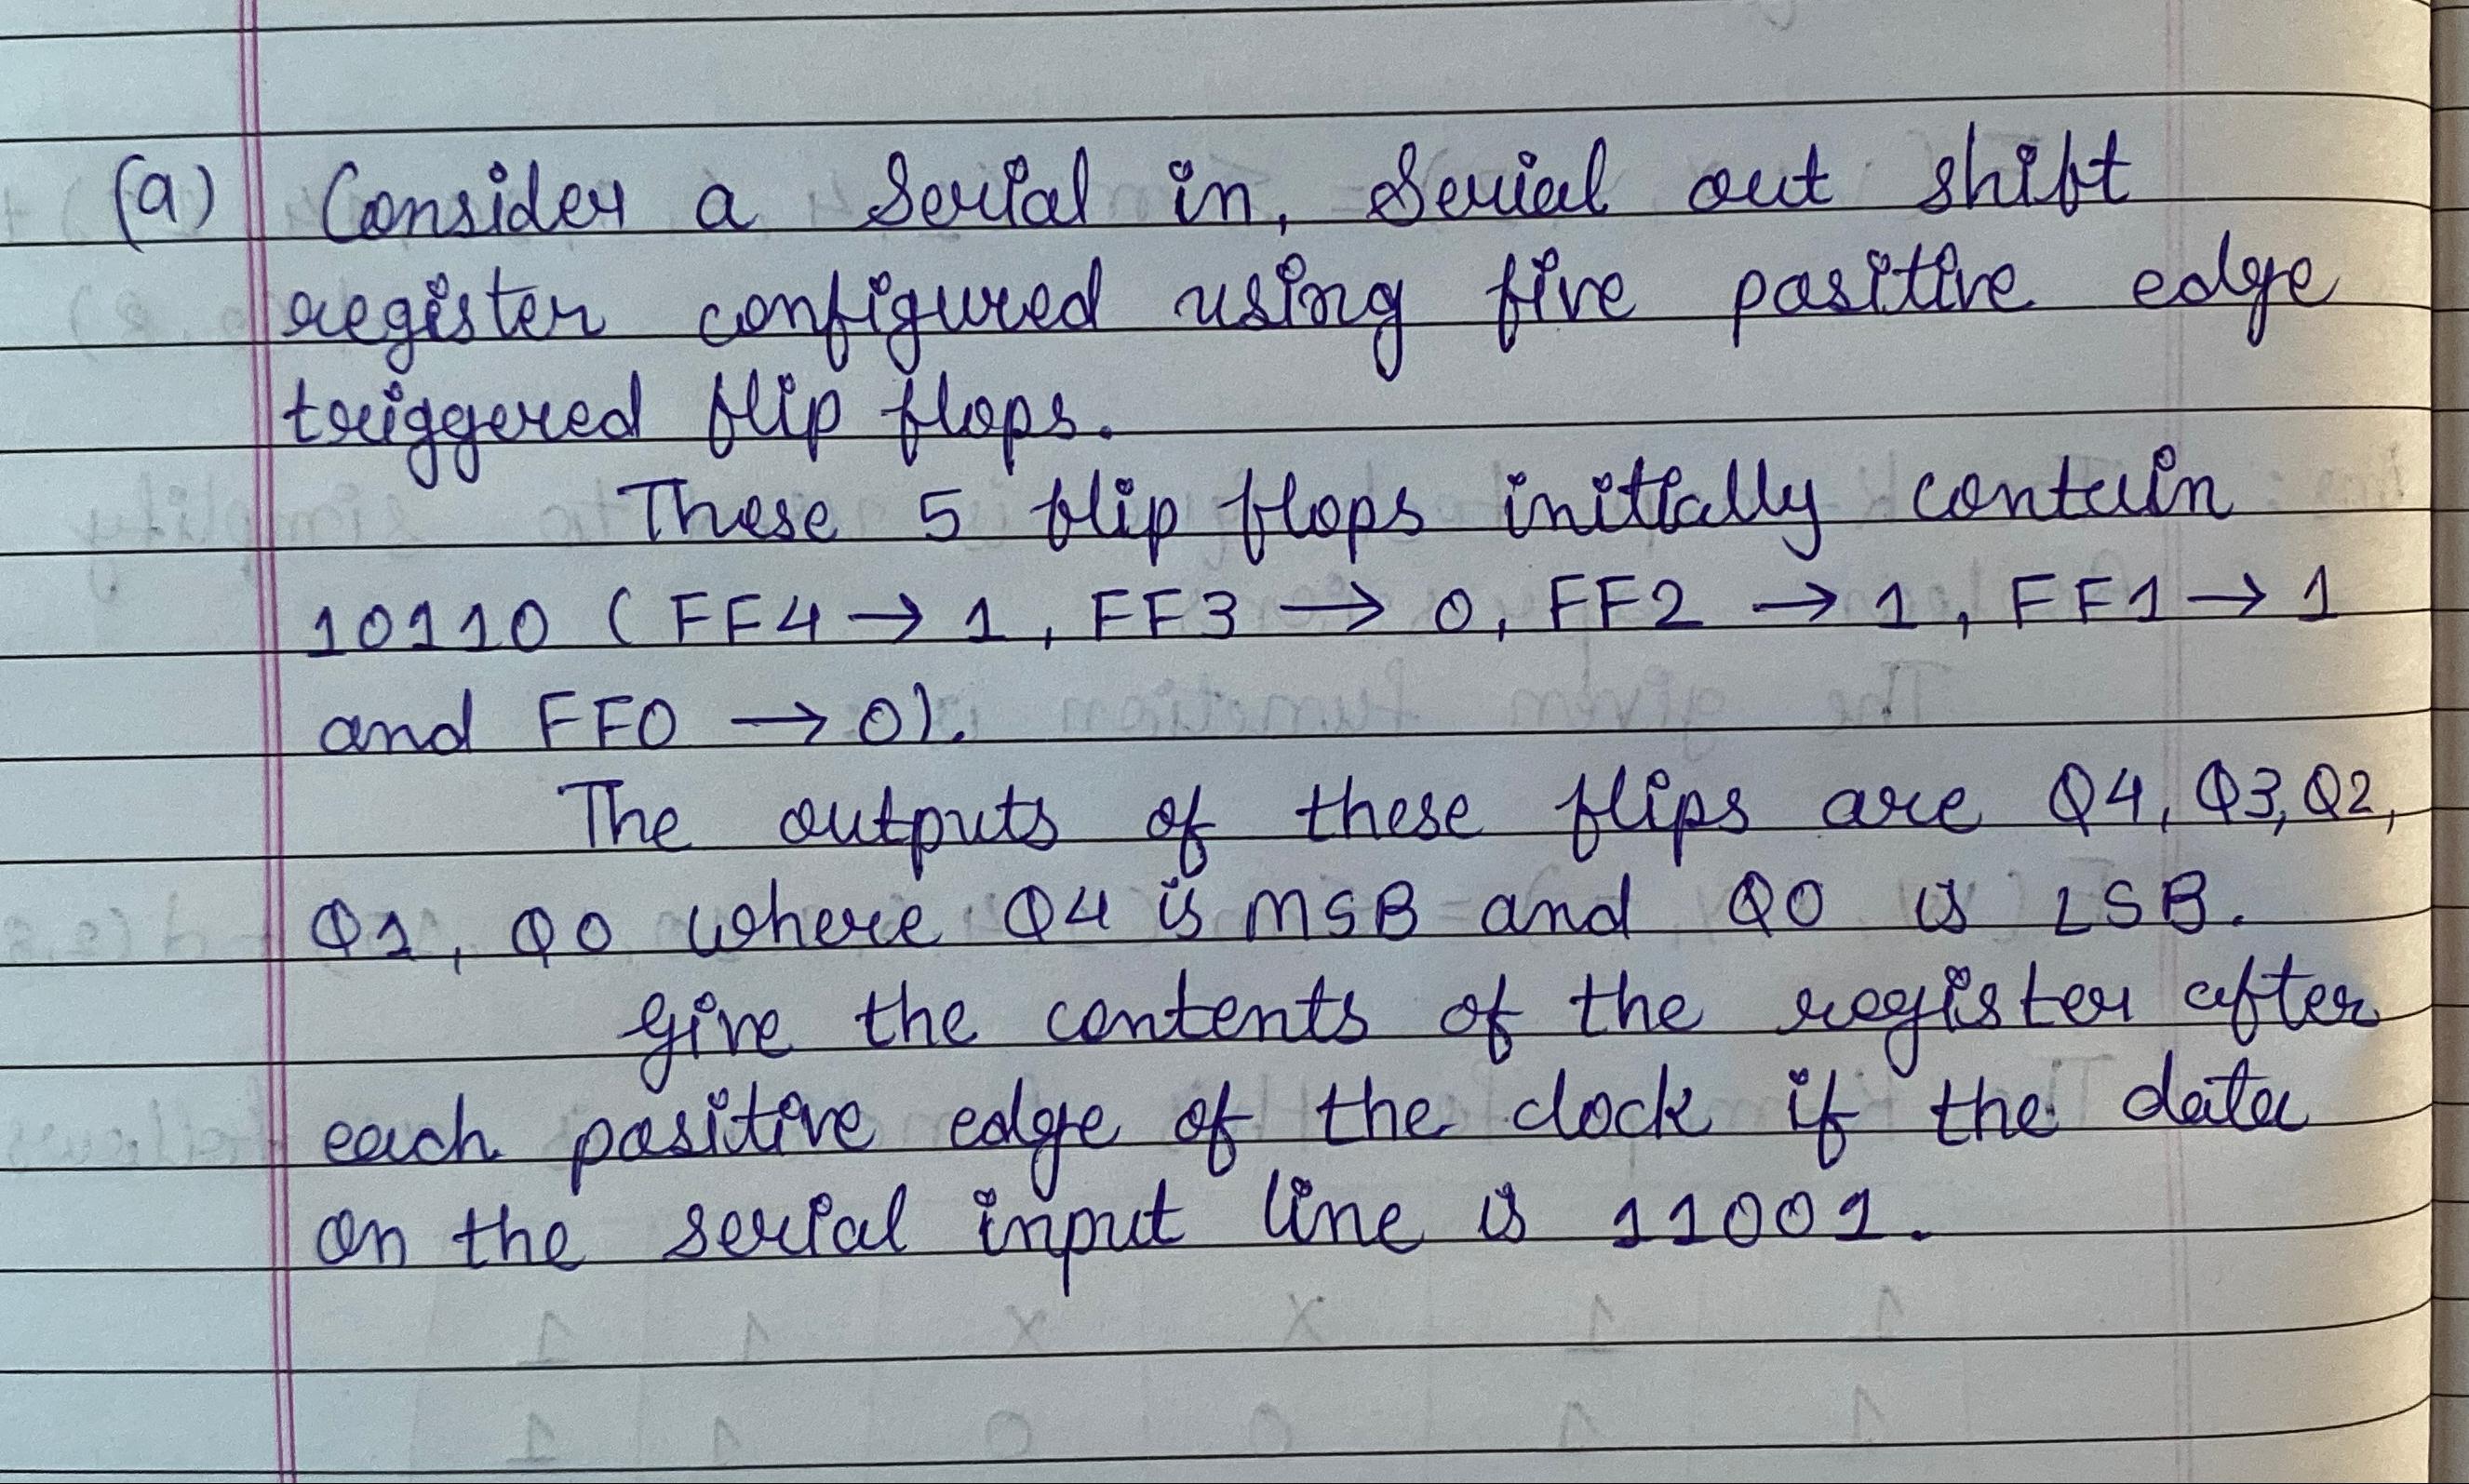 (a) Consider a Serial in, Serial out shift
register configured using five positive edge
triggered flip flops.
These 5 flip flops initially contain
10110 ( FF4 → 1, FF3 → 0, FF2 → 1, FF1 → 1
and FF0 → 0).
The outputs of these flips are Q4, Q3, Q2,
Q1, Q0 where Q4 is MSB and Q0 is LSB.
Give the contents of the register after
each positive edge of the clock if the data
on the serial input line is 11001.